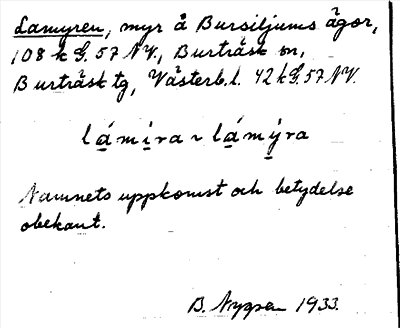 Lamyren, myr å Bursiljums ägor,
108 k G. 57 NV., Burträsk sn,
Burträsk tg, Västerb. l. 42 k G. 57 NV.
lá̱mi̱ra ~ lá̱mý̱ra
Namnets uppkomst och betydelse
obekant.
B. Nygren 1933.